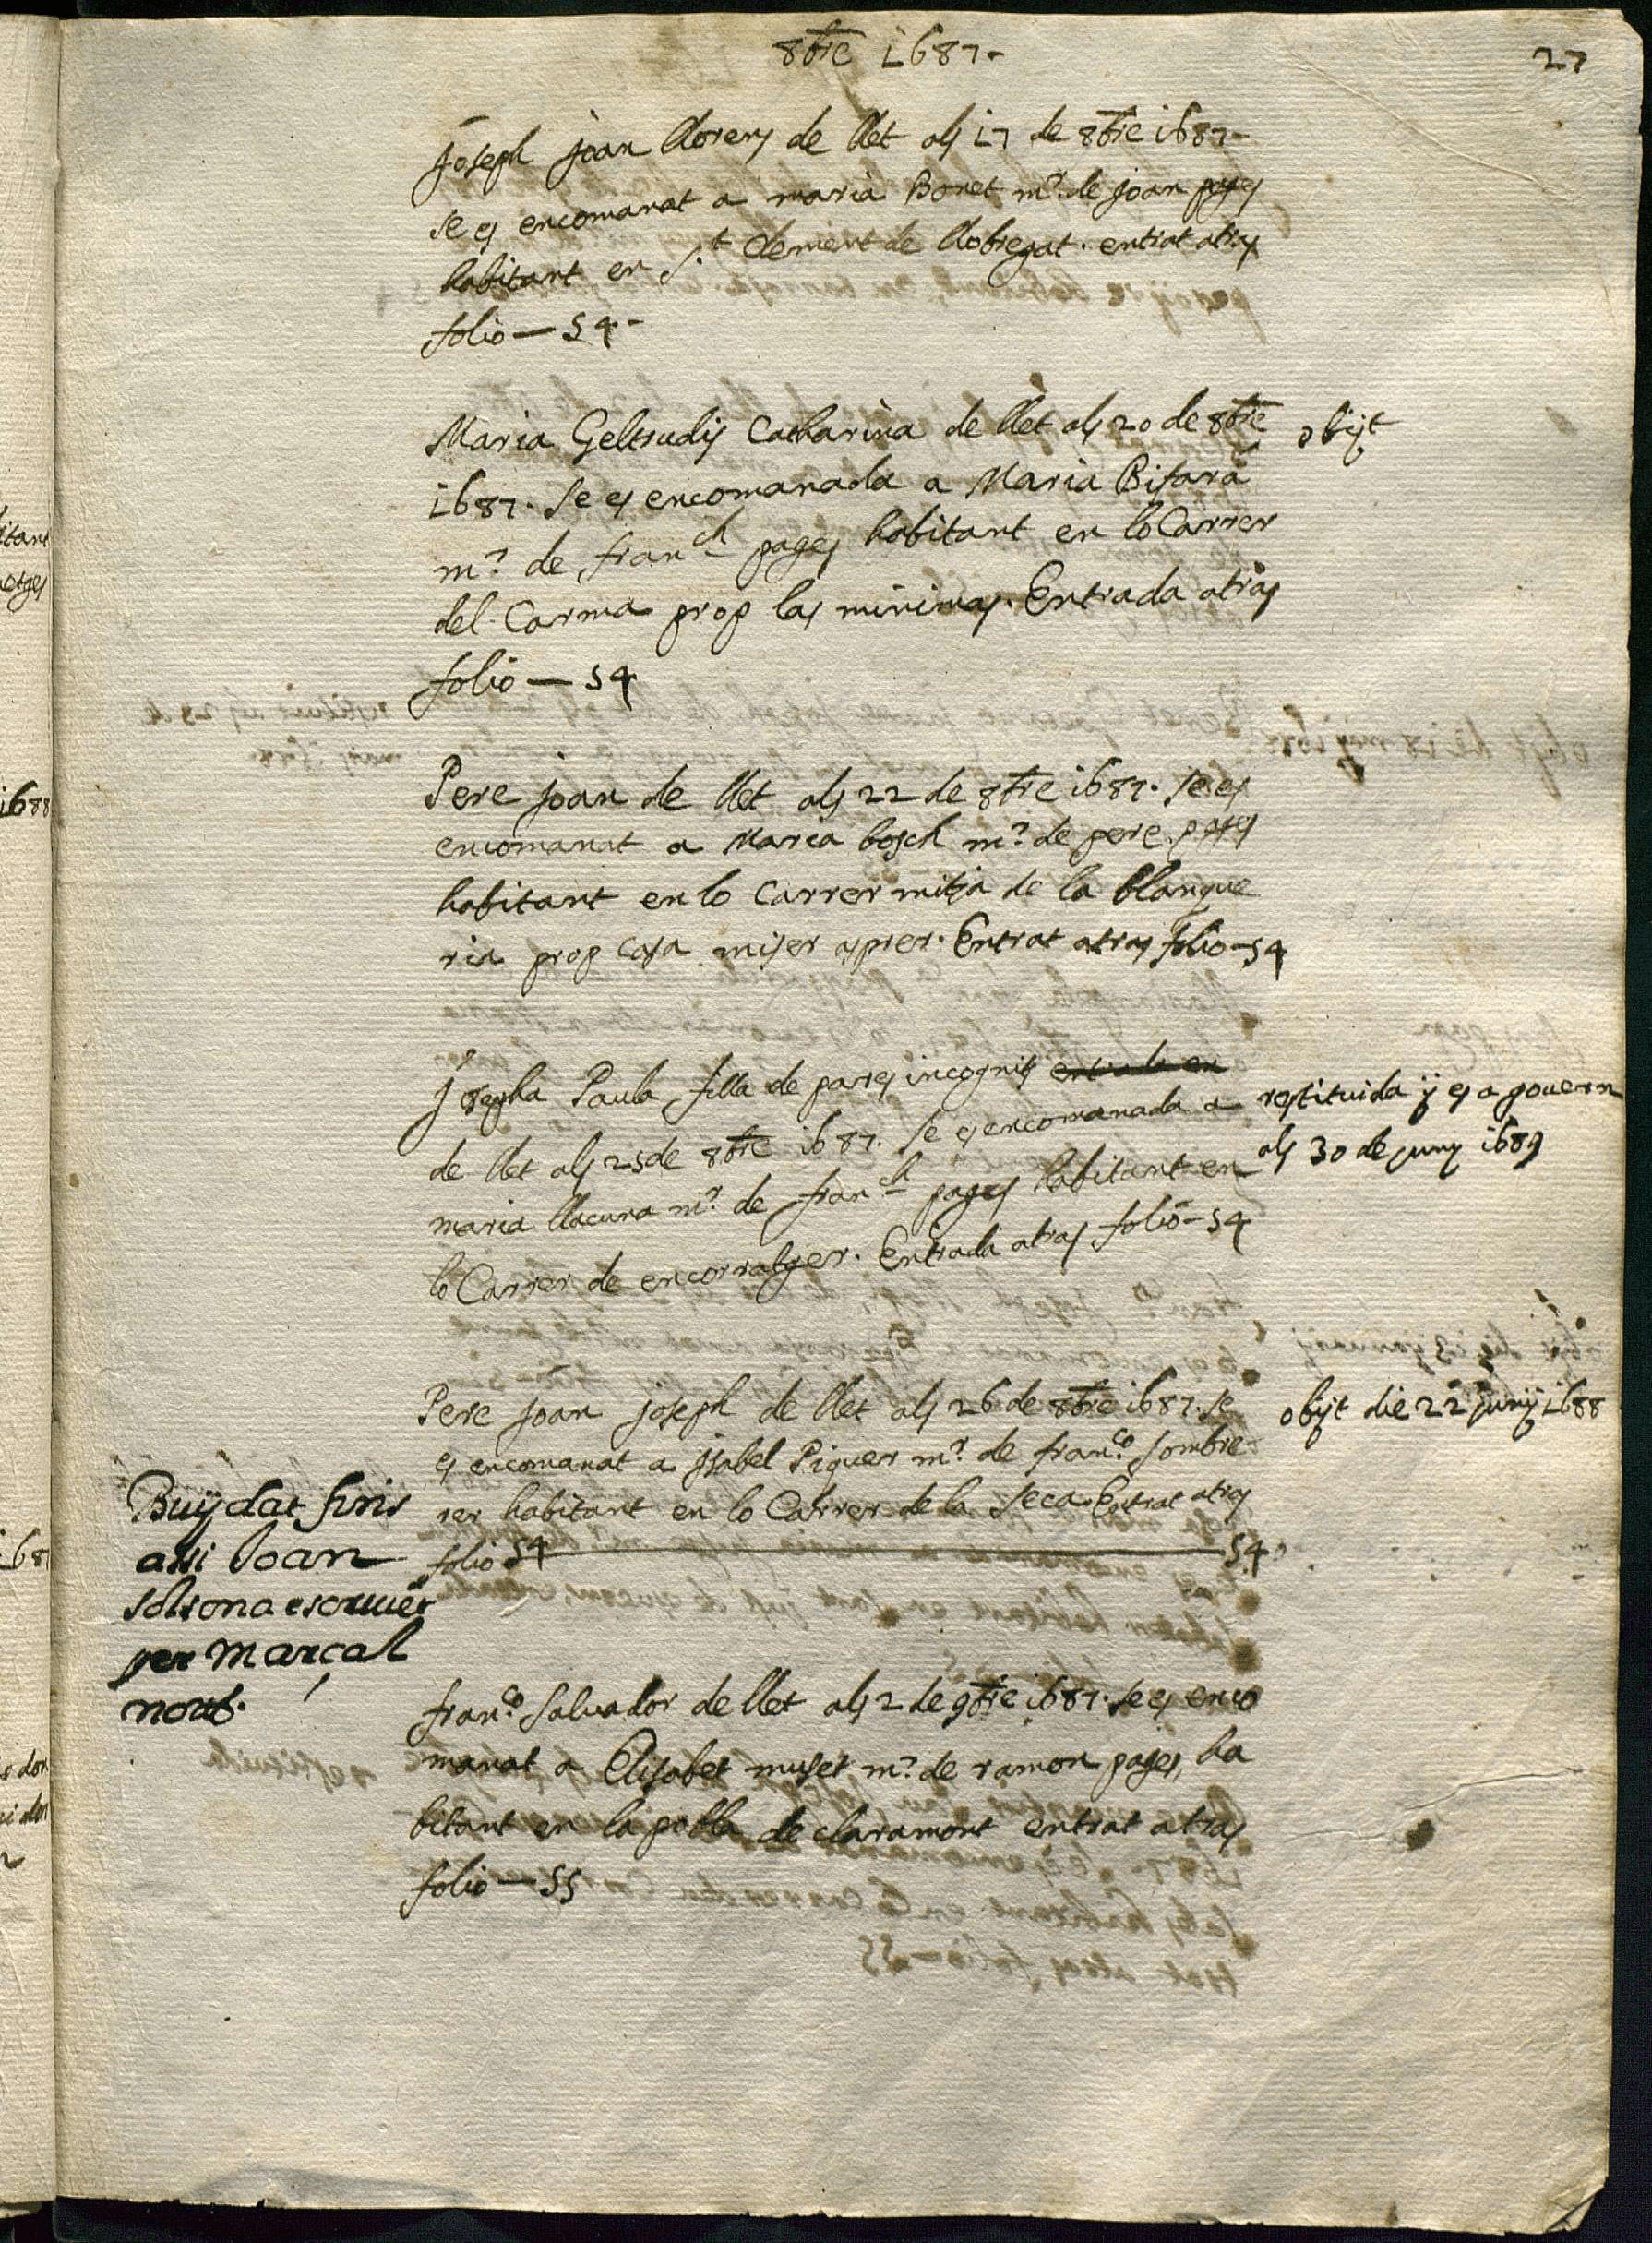 8bre 1687.
27
Joseph joan llorens de llet als 17 de 8bre 1687.
se es encomanat a maria Bonet mr. de joan pages
habitant en St. Clement de llobregat. entrat atras
folio — 54.
Maria Geltrudis Catharina de llet als 20 de 8bre
obijt
1687. Se es encomanada a Maria Bifara
mr. de franch pages habitant en lo Carrer
del Carma prop las minimas. Entrada atras
folio — 54
Pere joan de llet als 22 de 8bre 1687. Se es
encomanat a Maria bosch mr. de pere pages
habitant en lo Carrer mitja de la blanque
ria prop casa miser asprer. Entrat atras folio — 54
Josepha Paula filla de pares incognits entrada en
restituida ÿ es a govern
de llet als 25 de 8bre 1687. Se es encomanada a
als 30 de juny 1689
maria llacuna mr. de franch pages habitant en
lo Carrer de encorratger. Entrada atras folio — 54
Pere joan joseph de llet als 26 de 8bre 1687. se
obijt die 22 junij 1688
es encomanat a jsabel Piquer mr. de franco. sombre
rer habitant en lo Carrer de la Seca. Entrat atras
folio 54 — 54
Buÿdat fins
assi Joan
Solsona escriuer
per Marçal
nott.
franco. Salvador de llet als 2 de 9bre 1687. se es enco
manat a Elisabet muset mr. de ramon pages, ha
bitant en la pobla de claramont entrat atras
folio — 55